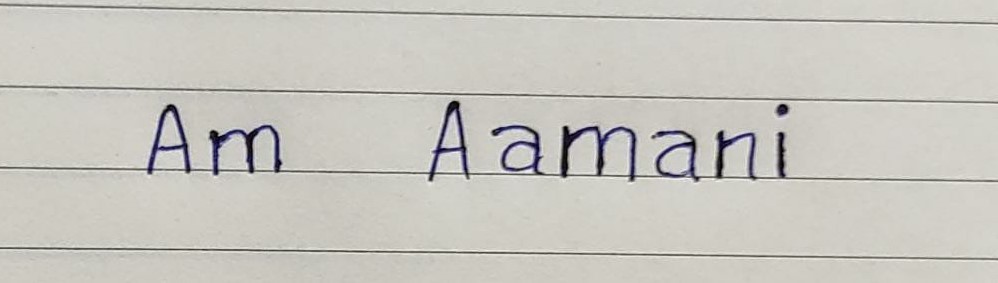 Am Aamani